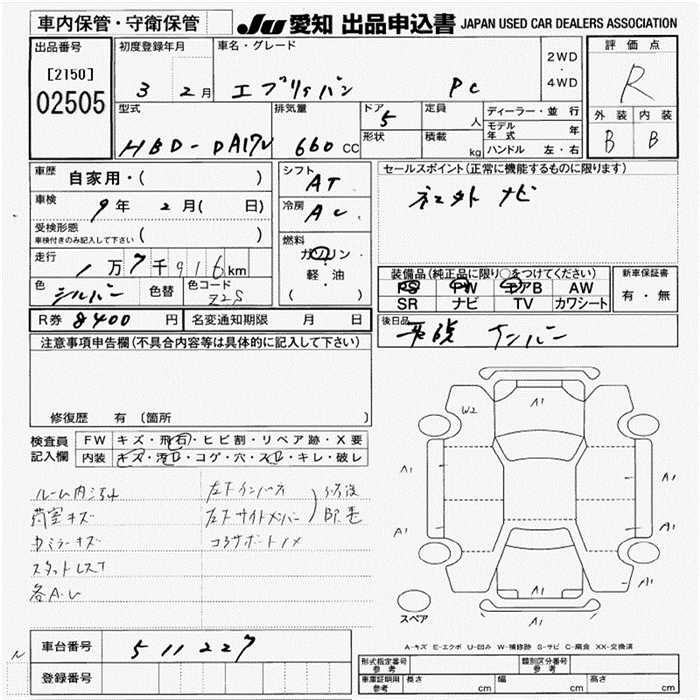 車内保管・守衛保管
JU 愛知 出品申込書 JAPAN USED CAR DEALERS ASSOCIATION
出品番号 初度登録年月 車名・グレード 2WD・4WD 評価点
[2150]
02505
3 2月 エブリイバン PC R
型式 排気量 ドア 5 定員 人 ディーラー・並行 外装 内装
モデル年式 年
HBD-DA17V 660cc 形状 積載 kg ハンドル 左・右 B B
車歴 自家用・( ) シフト AT セールスポイント(正常に機能するものに限ります)
車検 9年 2月( 日) 冷房 AC 社外 ナビ
受検形態
車検付きのみ記入して下さい
走行 1万7千916km 燃料 ガソリン・軽・油 ( )
装備品(純正品に限り○をつけてください) 新車保証書
PS PW エアB AW 有・無
SR ナビ TV カワシート
色 シルバー 色替 色コード Z2S
R券 8400円 名変通知期限 月 日 後日品
ナンバー
注意事項申告欄(不具合内容等は具体的に記入して下さい)
修復歴 有 (箇所 )
検査員記入欄 FW キズ・飛石・ヒビ割・リペア跡・X要
内装 キズ・汚レ・コゲ・穴・スレ・キレ・破レ
ルーム内
荷室キズ
左下サイドメンバー
各A・U
W2 A1
A1 A1
A1 A1
A1 A1
A1
スペア
A-キズ E-エクボ U-凹み W-補修跡 S-サビ C-腐食 XX-交換済
車台番号 511227
登録番号
型式指定番号 参考 類別区分番号 参考
車庫証明用 参考 長さ cm 幅 cm 高さ cm